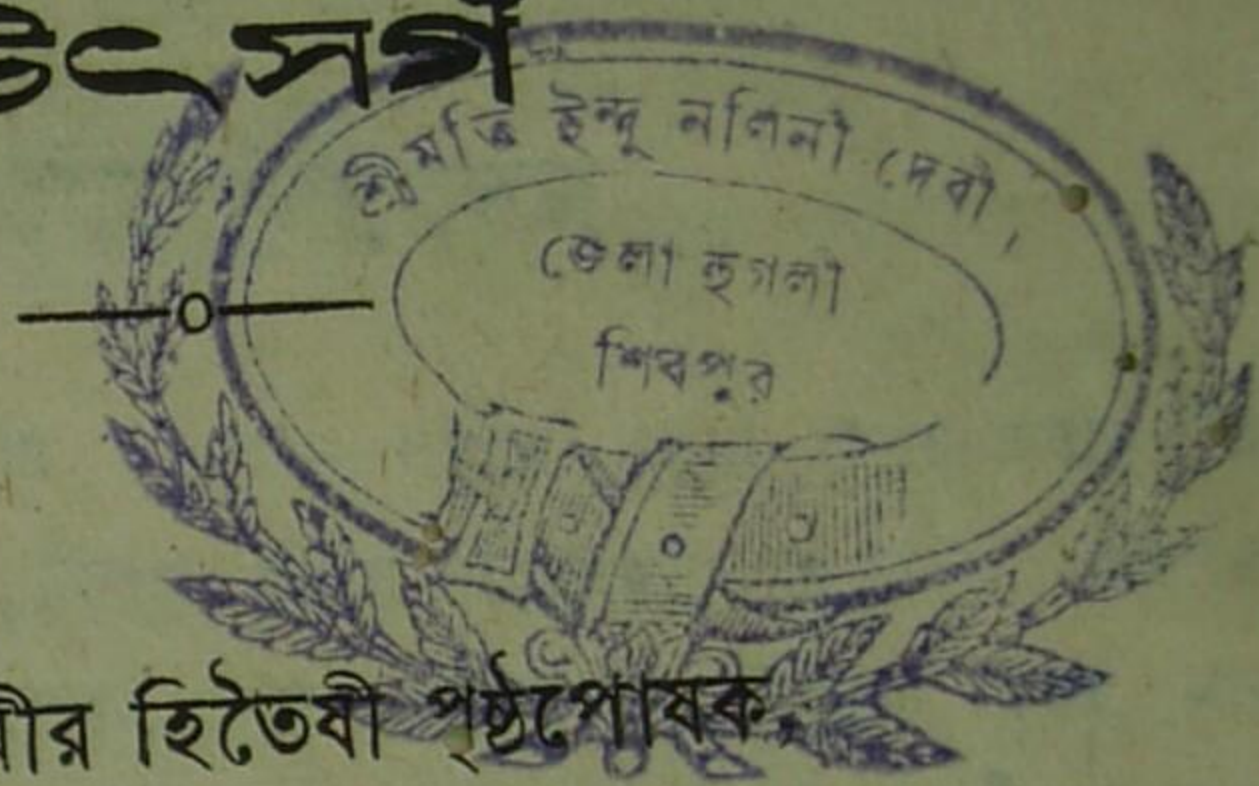 উৎসর্গ
শ্রীমতি ইন্দু নলিনী দেবী।
জেলা হুগলী
শিবপুর
হিতৈষী পৃষ্ঠপোষক,